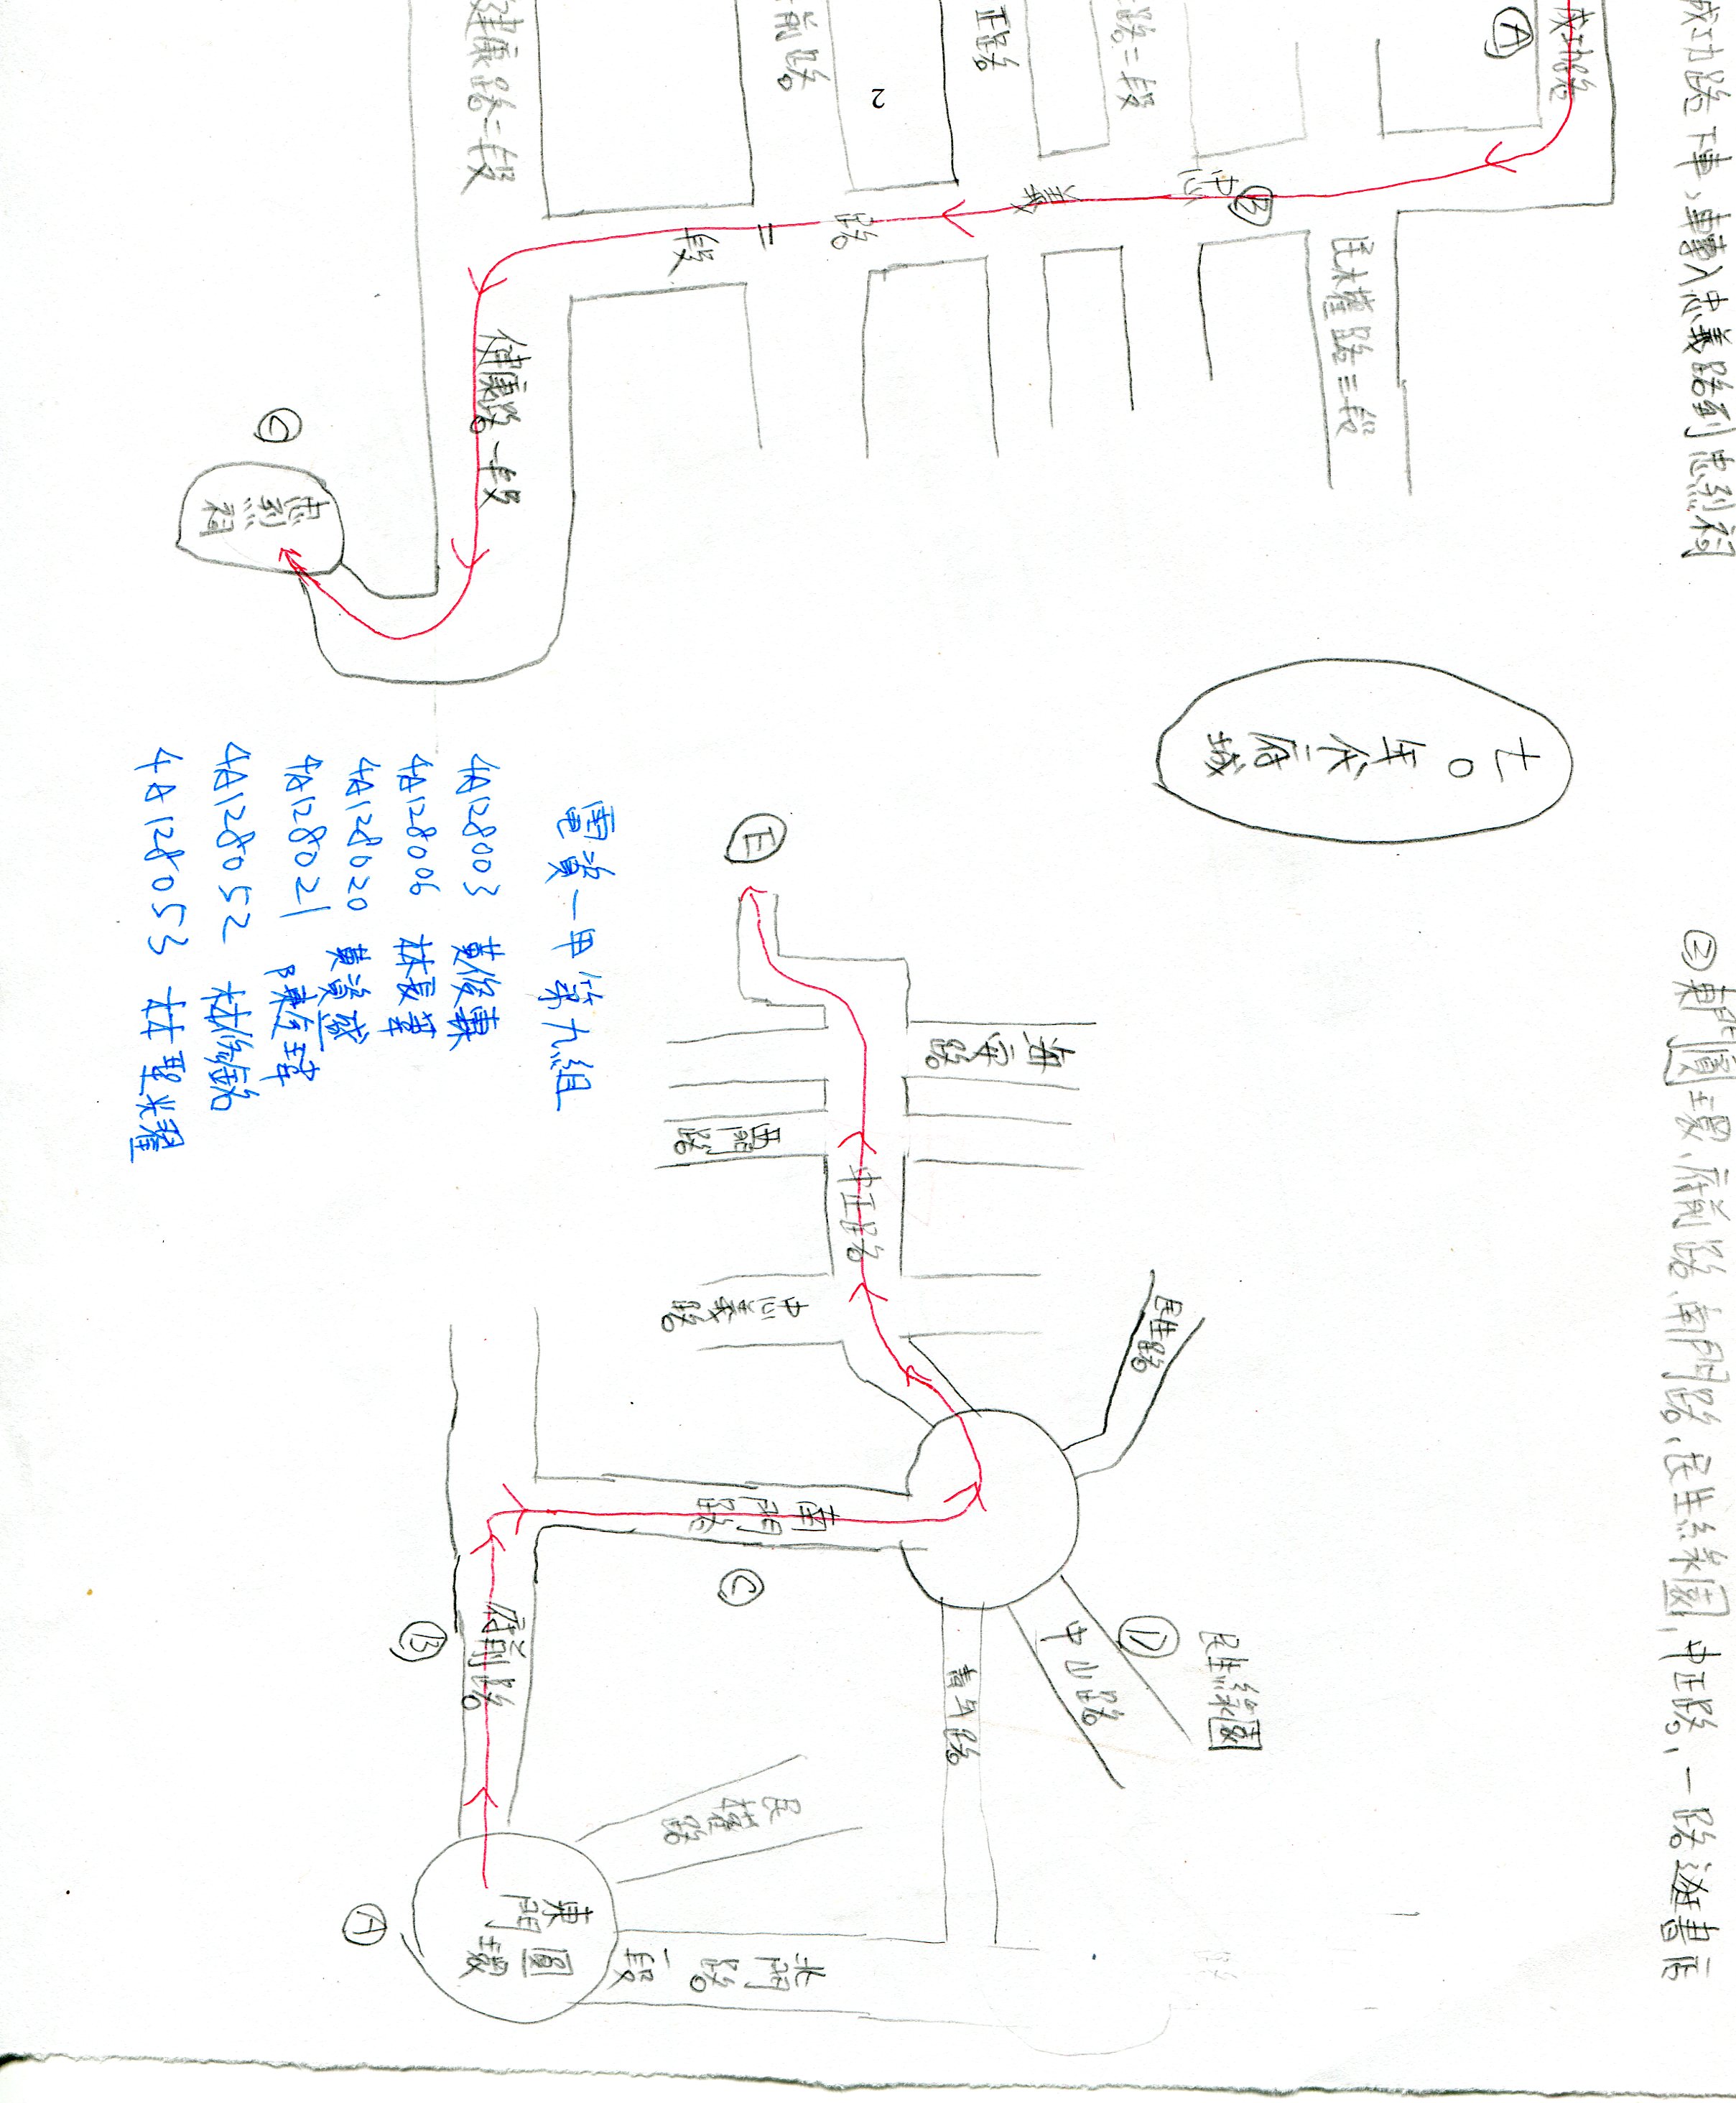 成功路下車、轉入忠義路到忠烈祠
②東門圓環、府前路、南門路、民生綠園、中正路,一路遊書示
成功路
Ⓐ
路二段
正路
前路
2
建康路二段
Ⓑ
忠義路二段
民權路三段
健康路一段
Ⓒ
忠烈祠
七○年代府城
Ⓔ
海安路
西門路
中正路
忠義路
民生路
南門路
Ⓒ
Ⓓ
中山路
民生綠園
青年路
Ⓑ
府前路
民權路
Ⓐ
東門圓環
北門路一段
電資一甲第九組
4A128003 黃俊
4A128006 林
4A128020 黃
4A128021 陳
4A128052 林
4A128053 林聖耀